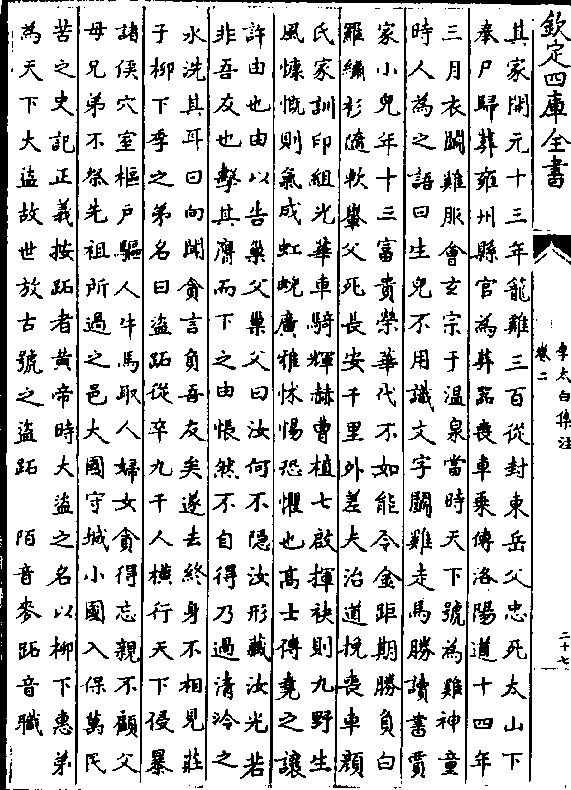 欽定四庫全書
李太白集注
卷二
二十七
其家開元十三年籠雞三百從封東岳父忠死太山下
奉尸歸葬雍州縣官為葬器喪車乘傳洛陽道十四年
三月衣鬭雞服會玄宗于温泉當時天下號為雞神童
時人為之語曰生兒不用識文字鬭雞走馬勝讀書賈
家小兒年十三富貴榮華代不如能令金距期勝負白
羅繡衫隨軟轝父死長安千里外差夫治道挽喪車顔
氏家訓印組光華車騎輝赫曹植七啟揮袂則九野生
風慷慨則氣成虹蜺廣雅怵惕恐懼也髙士傳堯之讓
許由也由以告巢父巢父曰汝何不隠汝形藏汝光若
非吾友也擊其膺而下之由悵然不自得乃過清泠之
水洗其耳曰向聞貪言負吾友矣遂去終身不相見莊
子柳下季之弟名曰盜跖從卒九千人横行天下侵暴
諸侯穴室樞戶驅人牛馬取人婦女貪得忘親不顧父
母兄弟不祭先祖所過之邑大國守城小國入保萬民
苦之史記正義按跖者黄帝時大盜之名以柳下惠弟
為天下大盜故世放古號之盜跖　陌音麥跖音職